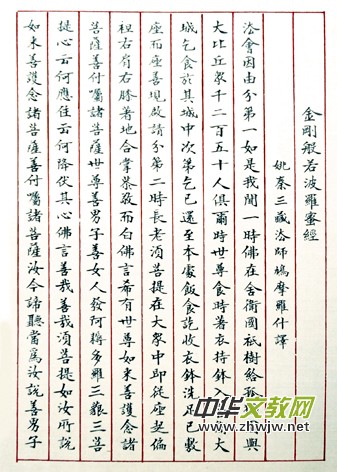 金剛般若波羅蜜經
姚秦三藏法師鳩摩羅什譯
法會因由分第一如是我聞一時佛在舍衛國祇樹給孤與
大比丘眾千二百五十人俱爾時世尊食時著衣持鉢入大
城乞食於其城中次第乞已還至本處飯食訖收衣鉢洗足已敷
座而座善現啟請分第二時長老須菩提在大眾中即從座起偏
袒右肩右膝著地合掌恭敬而白佛言希有世尊如來善護念諸
菩薩善付囑諸菩薩世尊善男子善女人發阿耨多羅三藐三菩
提心云何應住云何降伏其心佛言善哉善哉須菩提如汝所說
如來善護念諸菩薩善付囑諸菩薩汝今諦聽當為汝說善男子
中华文教网